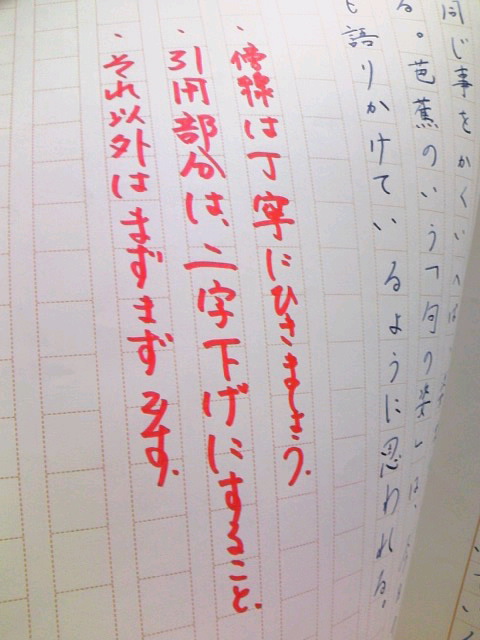 同じ事をかくいへば
る。芭蕉のいう「句の姿」は、
語りかけているように思われる。
・傍線は丁寧にひきましょう。
・引用部分は、二字下げにすること。
・それ以外はまずまずです。